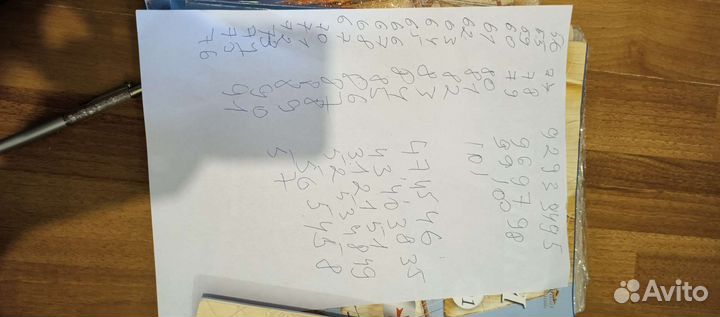 56 77 92 93 94 95
55 78 96 97 98
59 79 99 100
60
61 80 101
62 81
63 82
64 83
65 84 47 45 46
66 85
67 86 43 40 38 35
68 87 31 21 51 49
67 88 52 53 48
70 89 56 5 45 8
71 90 57
72 91
73
74
75
76
Avito